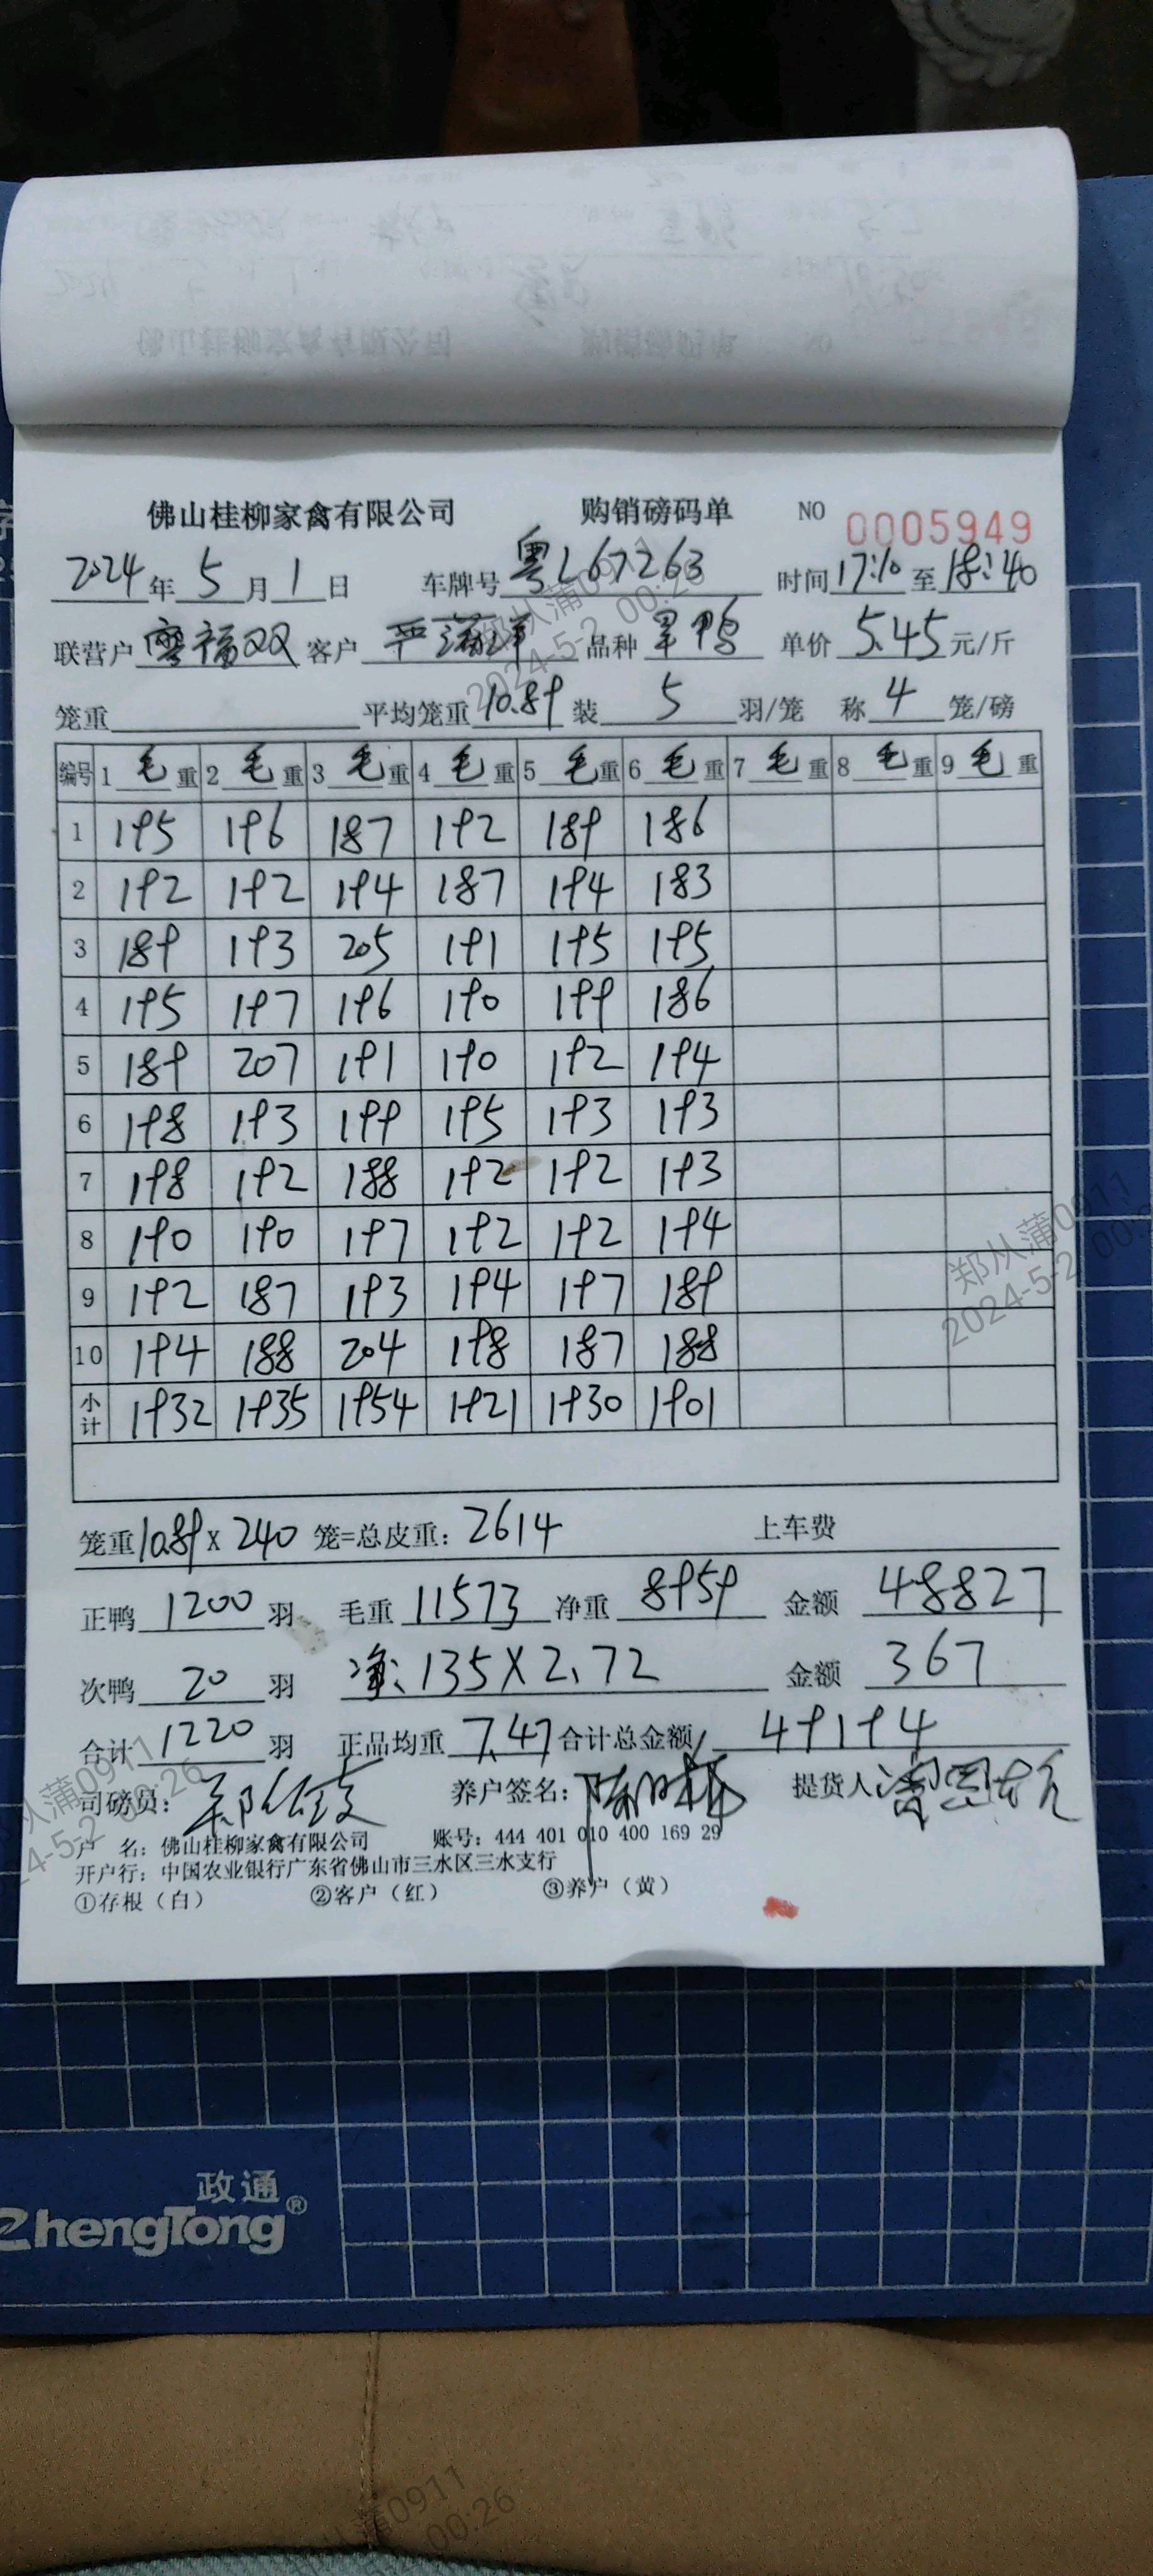 佛山桂柳家禽有限公司 购销磅码单 NO 0005949
2024年5月1日 车牌号 粤L67263 时间17:10至18:40
联营户 廖福双 客户 严 品种 旱鸭 单价 5.45 元/斤
笼重 平均笼重 10.89 装 5 羽/笼 称 4 笼/磅
编号 1 毛 重 2 毛 重 3 毛 重 4 毛 重 5 毛 重 6 毛 重 7 毛 重 8 毛 重 9 毛 重
1 195 196 187 192 189 186
2 192 192 194 187 194 183
3 189 193 205 191 195 195
4 195 197 196 190 199 186
5 189 207 191 190 192 194
6 198 193 199 195 193 193
7 198 192 188 192 192 193
8 190 190 197 192 192 194
9 192 187 193 194 197 189
10 194 188 204 198 187 188
小计 1932 1935 1954 1921 1930 1901
笼重10.89 X 240 笼=总皮重: 2614 上车费
正鸭 1200 羽 毛重 11573 净重 8959 金额 48827
次鸭 20 羽 净: 135X2.72 金额 367
合计 1220 羽 正品均重 7.47 合计总金额 49194
司磅员: 养户签名: 提货人
户 名: 佛山桂柳家禽有限公司 账号: 444 401 010 400 169 29
开户行: 中国农业银行广东省佛山市三水区三水支行
①存根（白） ②客户（红） ③养户（黄）
郑从蒲0911
2024-5-2 00:26
政通®
ZhengTong